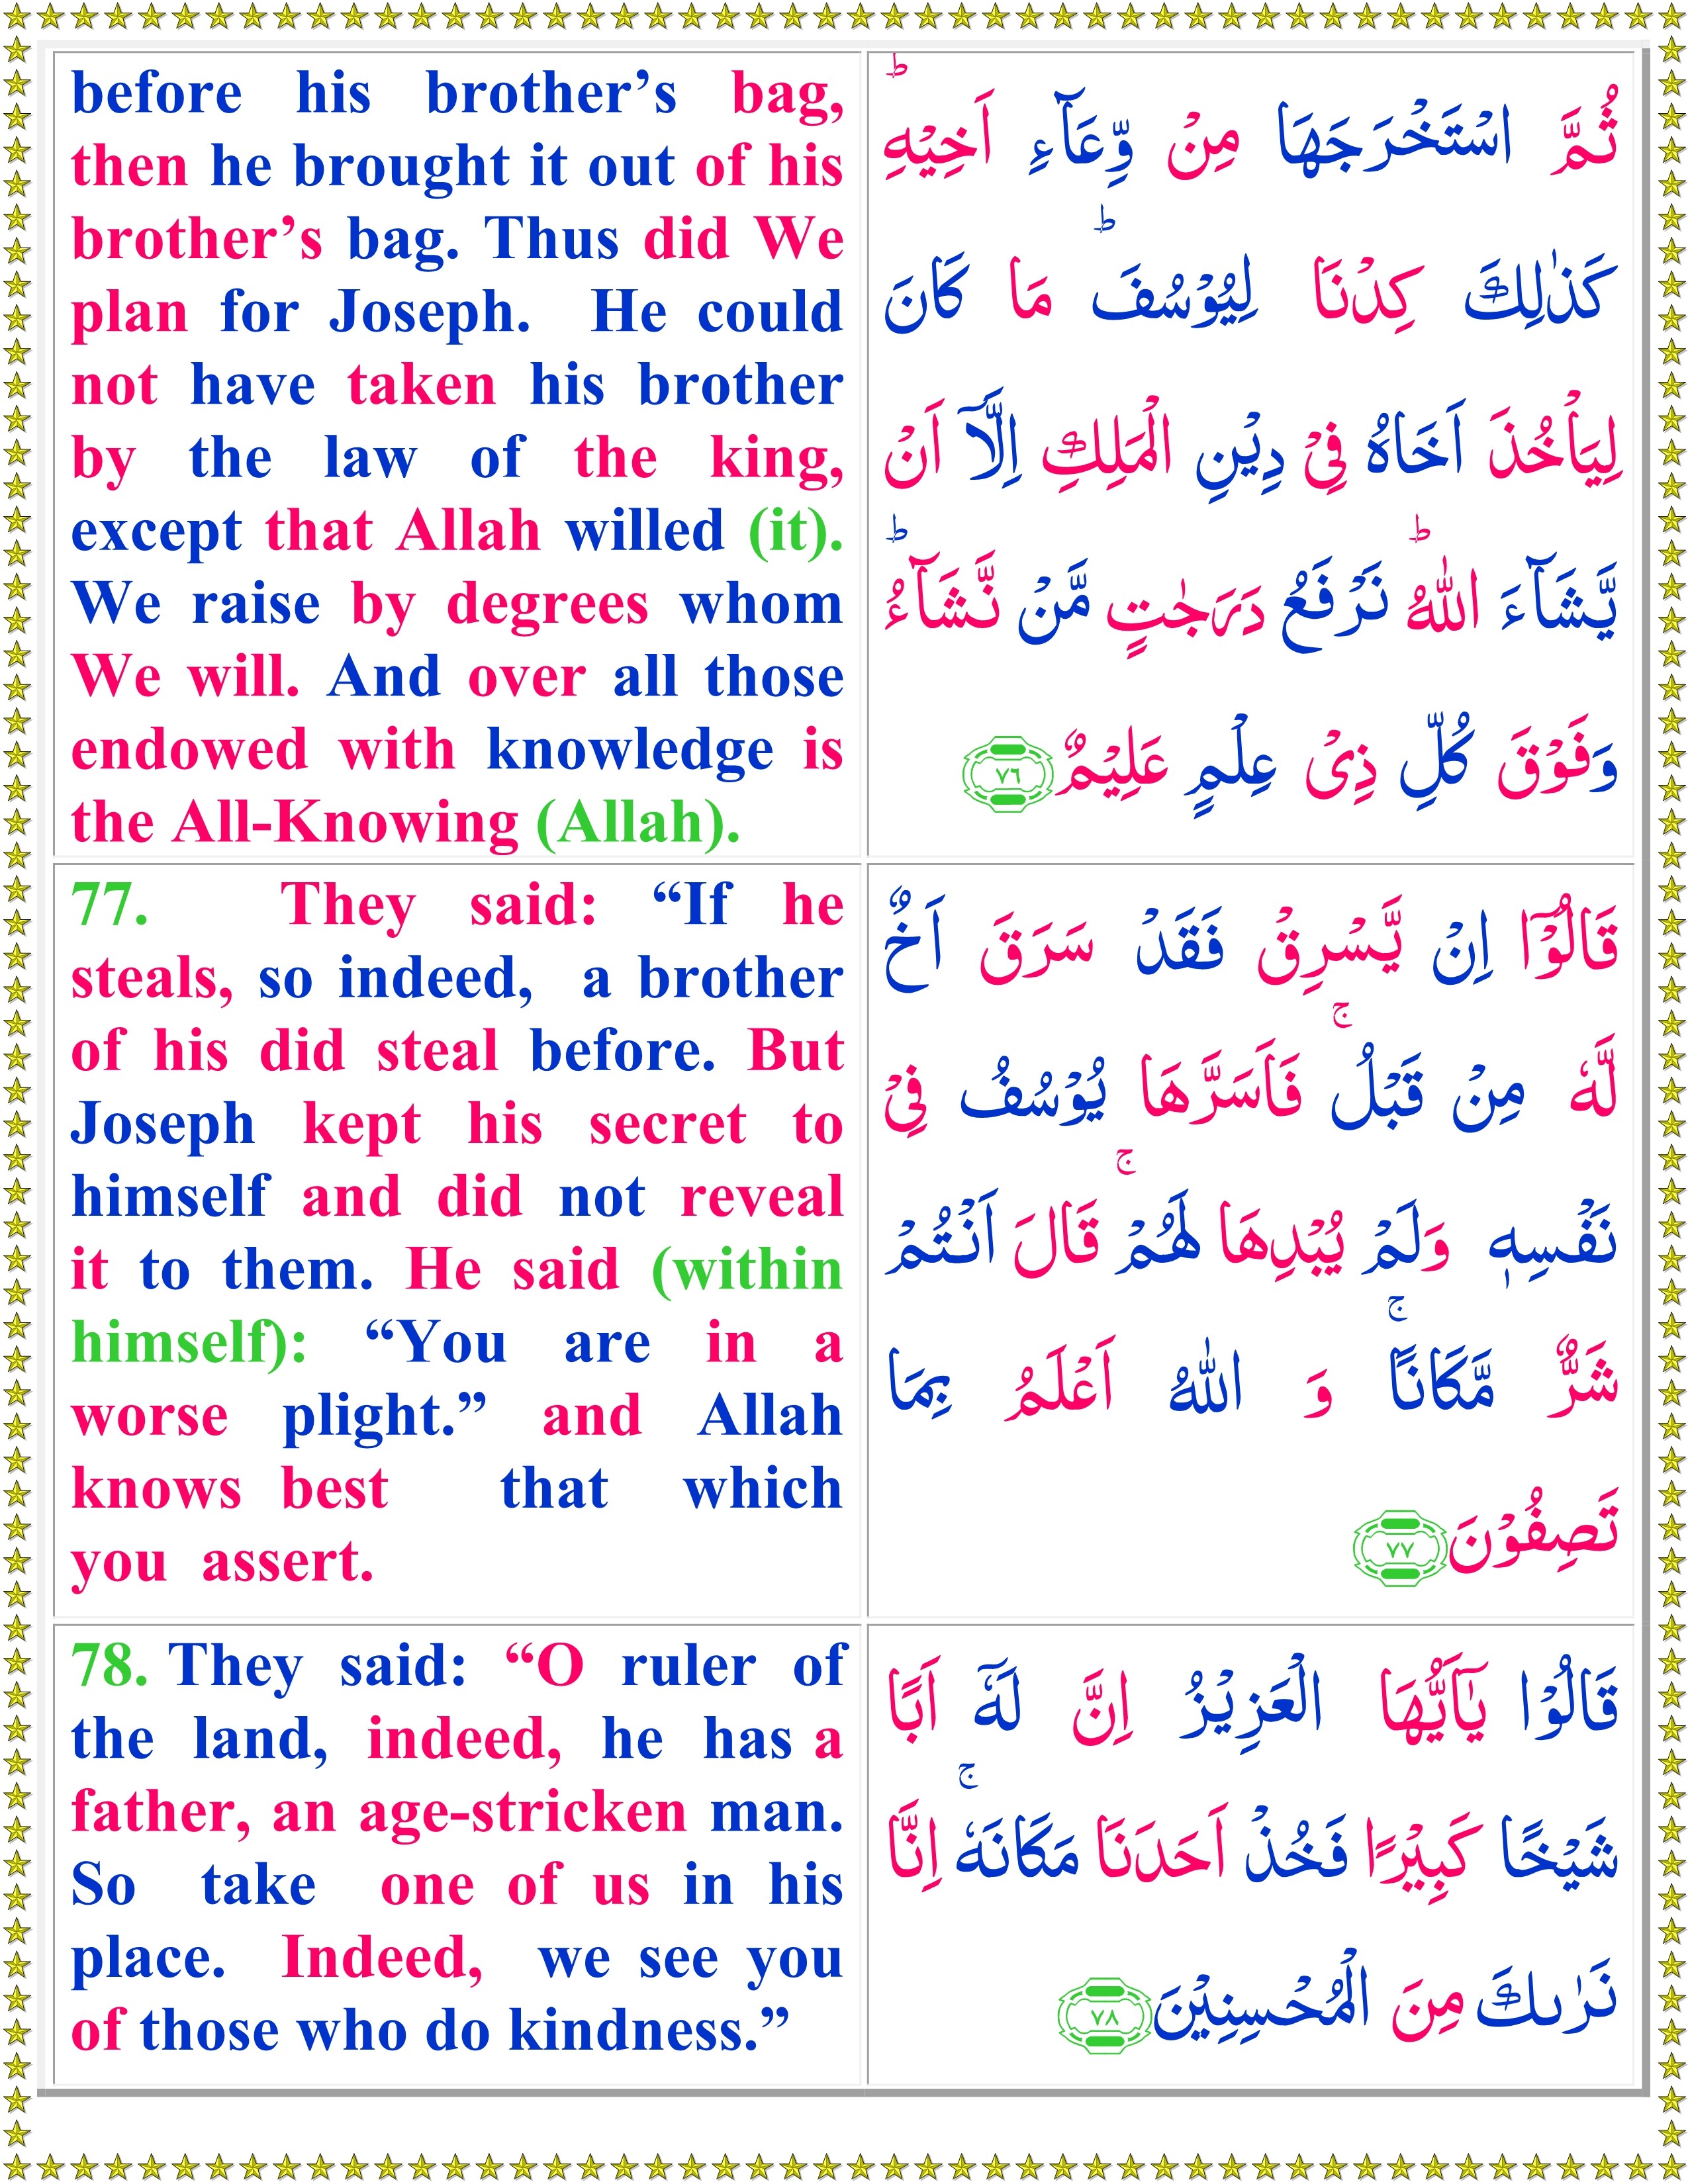 before his brother’s bag,
then he brought it out of his
brother’s bag. Thus did We
plan for Joseph. He could
not have taken his brother
by the law of the king,
except that Allah willed (it).
We raise by degrees whom
We will. And over all those
endowed with knowledge is
the All-Knowing (Allah).
ثُمَّ اسْتَخْرَجَهَا مِنْ وِّعَآءِ اَخِيْهِ ؕ
كَذٰلِكَ كِدْنَا لِيُوْسُفَ ؕ مَا كَانَ
لِيَاْخُذَ اَخَاهُ فِيْ دِيْنِ الْمَلِكِ اِلَّاۤ اَنْ
يَّشَآءَ اللّٰهُ ؕ نَرْفَعُ دَرَجٰتٍ مَّنْ نَّشَآءُ ؕ
وَفَوْقَ كُلِّ ذِيْ عِلْمٍ عَلِيْمٌ ٧٦
77. They said: “If he
steals, so indeed, a brother
of his did steal before. But
Joseph kept his secret to
himself and did not reveal
it to them. He said (within
himself): “You are in a
worse plight.” and Allah
knows best that which
you assert.
قَالُوْۤا اِنْ يَّسْرِقْ فَقَدْ سَرَقَ اَخٌ
لَّهٗ مِنْ قَبْلُ ۚ فَاَسَرَّهَا يُوْسُفُ فِيْ
نَفْسِهٖ وَلَمْ يُبْدِهَا لَهُمْ ۚ قَالَ اَنْتُمْ
شَرٌّ مَّكَانًا ۚ وَ اللّٰهُ اَعْلَمُ بِمَا
تَصِفُوْنَ ٧٧
78. They said: “O ruler of
the land, indeed, he has a
father, an age-stricken man.
So take one of us in his
place. Indeed, we see you
of those who do kindness.”
قَالُوْا يٰۤاَيُّهَا الْعَزِيْزُ اِنَّ لَهٗۤ اَبًا
شَيْخًا كَبِيْرًا فَخُذْ اَحَدَنَا مَكَانَهٗ ۚ اِنَّا
نَرٰىكَ مِنَ الْمُحْسِنِيْنَ ٧٨